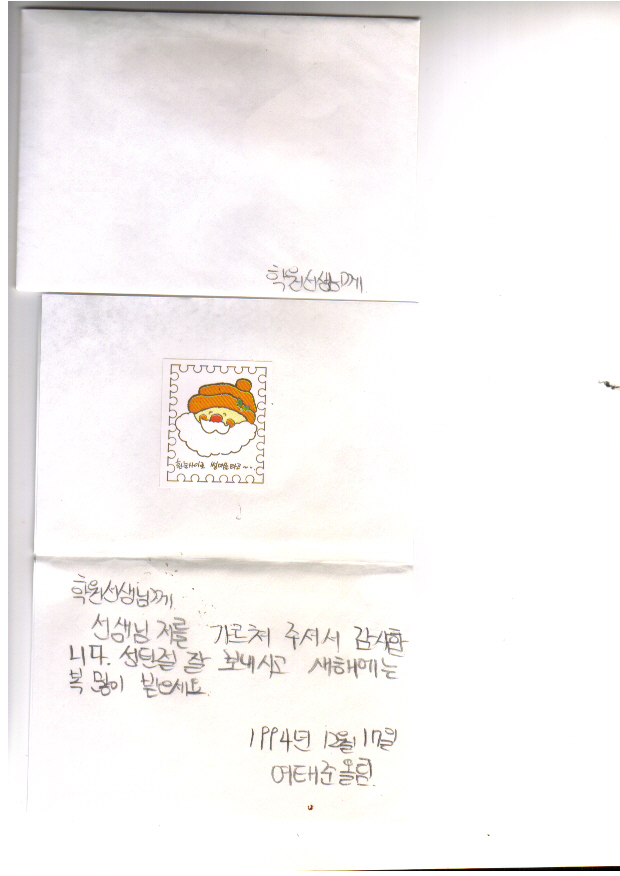 학원선생님께
흰눈사이로 썰매를타고~..
학원선생님께
선생님 저를 가르쳐 주셔서 감사합
니다. 성탄절 잘 보내시고 새해에는
복 많이 받으세요.
1994년 12월 17일
여태준올림.